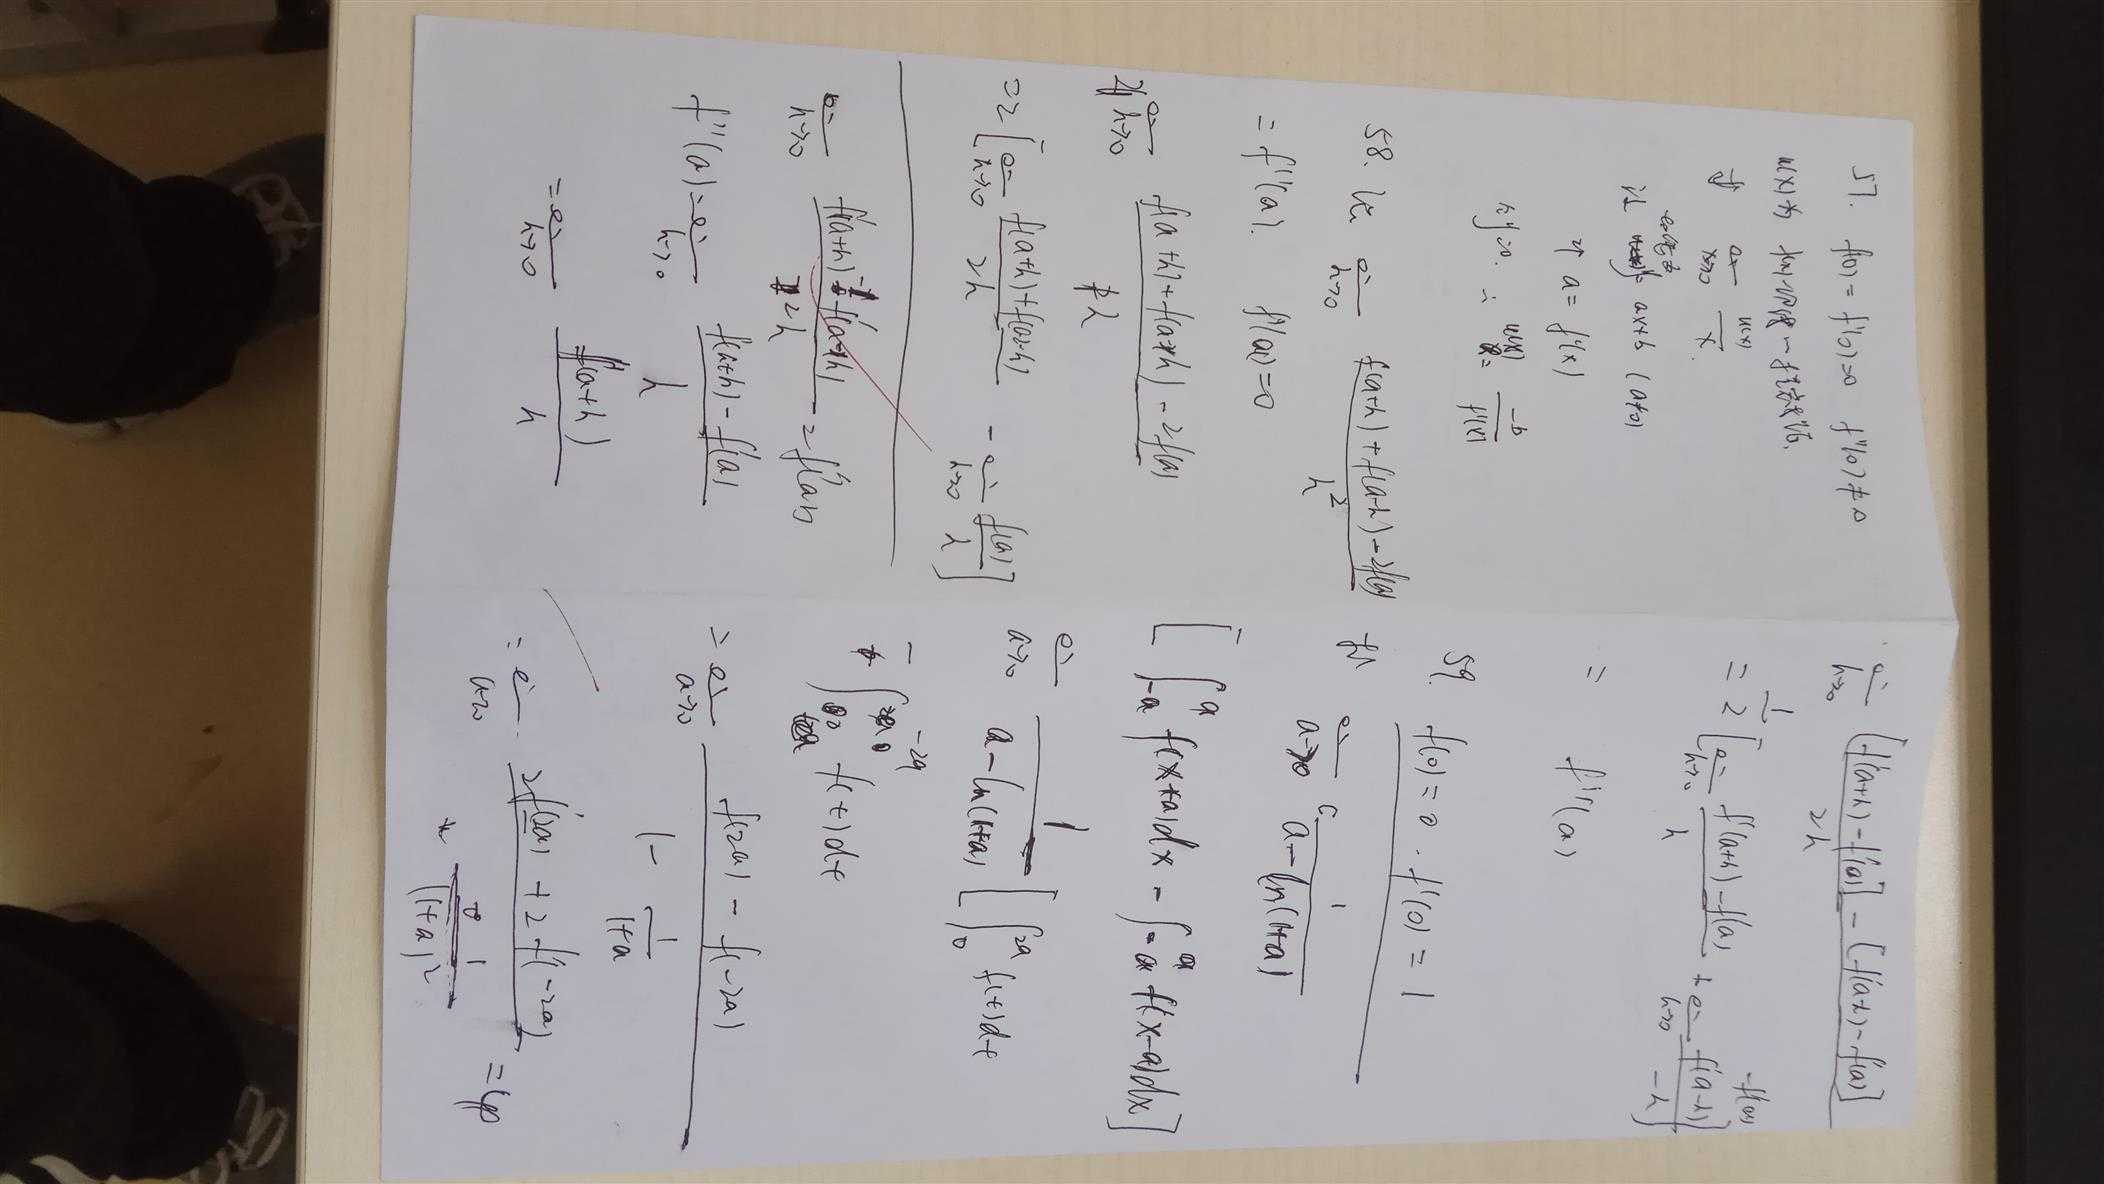 57. f(0) = f'(0) = 0 f''(0) ≠ 0
u(x)为 f(x)
lim x→0 u(x)/x
设 = ax+b (a≠0)
a = f'(x)
令y=0. ∴ u(x) = -b/f'(x)
58. lim h→0 (f(a+h) + f(a-h) - 2f(a))/h²
= f''(a). f'(a)=0
lim h→0 (f(a+h) + f(a-h) - 2f(a))/h
=2[lim h→0 (f(a+h)+f(a-h))/2h - lim h→0 f(a)/h]
lim h→0 (f'(a+h) - f'(a-h))/2h - 2f(a)
f''(a) = lim h→0 (f'(a+h) - f'(a))/h
= lim h→0 f'(a+h)/h
lim h→0 ([f'(a+h) - f'(a)] - [f'(a-h) - f'(a)])/2h
= 1/2 [lim h→0 (f'(a+h) - f'(a))/h + lim h→0 (f'(a-h) - f'(a))/-h]
= f''(a)
59. f(0) = 0. f'(0) = 1
lim a→0 1/(a - ln(1+a))
[∫_{-a}^{a} f(x+a)dx - ∫_{-a}^{a} f(x-a)dx]
lim a→0 1/(a - ln(1+a)) [∫_0^{2a} f(t)dt
- ∫ f(t)dt
= lim a→0 (f(2a) - f(-2a))/(1 - 1/(1+a))
= lim a→0 (2f'(2a) + 2f'(-2a))/(1/(1+a)²) = 4